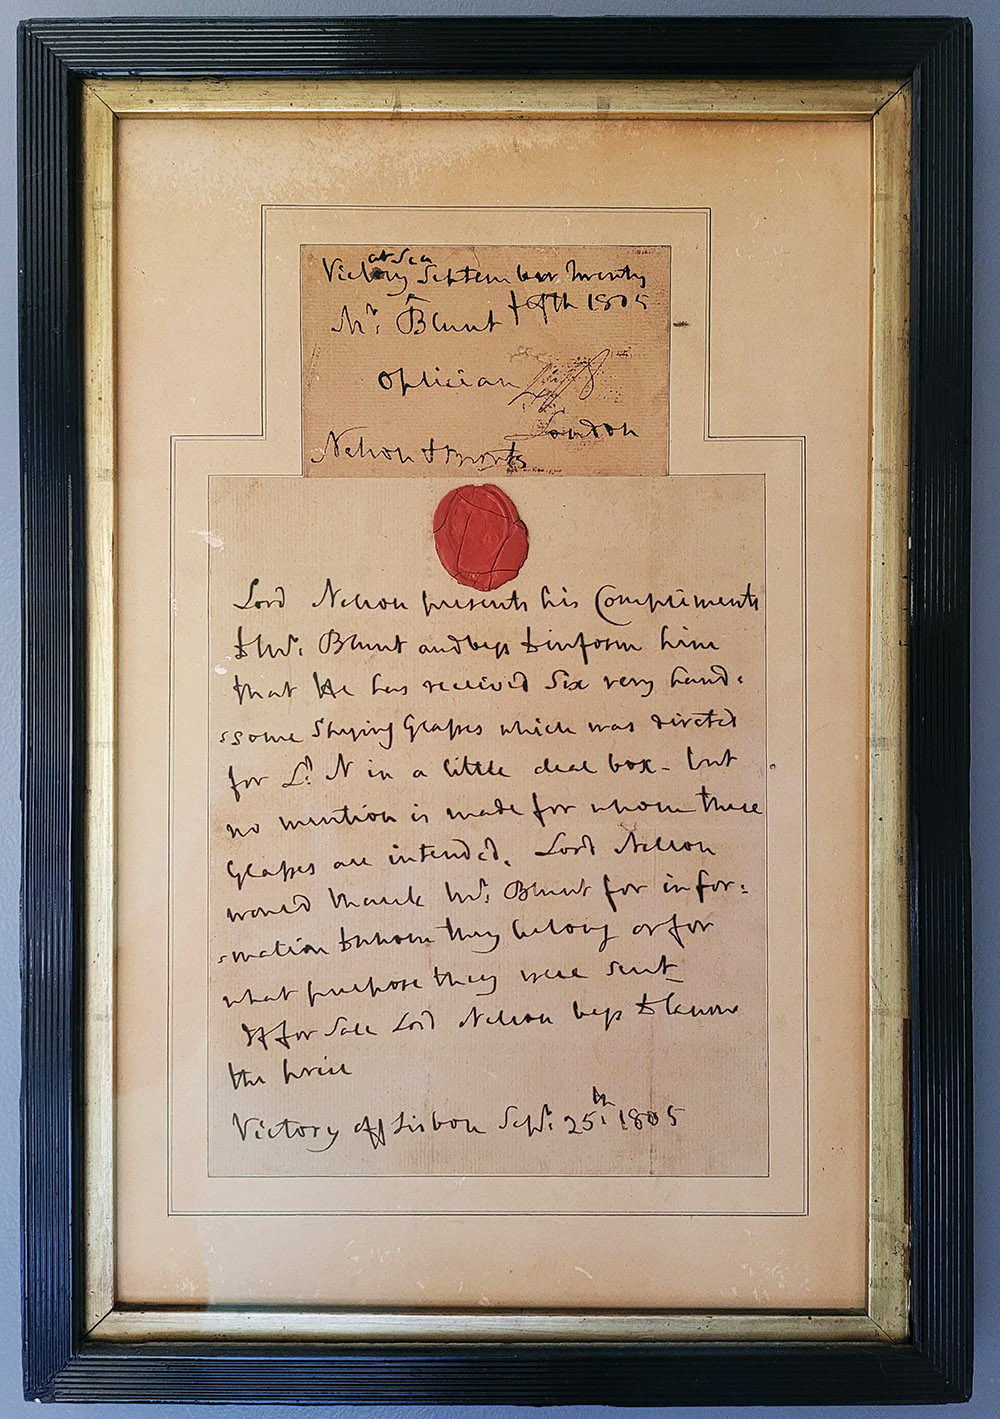 at Sea
Victory September Twenty
Mr. Blunt fifth 1805
Optician
London
Nelson & Bronte
Lord Nelson presents his Compliments
to Mr. Blunt and begs to inform him
that He has received Six very hand=
=some Spying Glasses which was directed
for Ld. N in a little deal box - but
no mention is made for whom these
Glasses are intended. Lord Nelson
would thank Mr. Blunt for infor=
=mation to whom they belong or for
what purpose they were sent
If for Sale Lord Nelson begs to know
the price
Victory off Lisbon Sepr. 25th. 1805